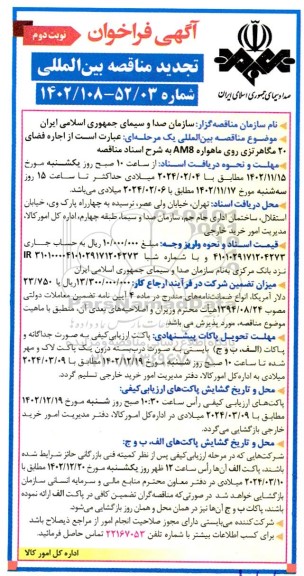 آگهی فراخوان
نوبت دوم
تجدید مناقصه بین‌المللی
شماره ۱۴۰۲/۱۰۸-۵۲/۰۳
صدا و سیمای جمهوری اسلامی ایران
نام سازمان مناقصه‌گزار: سازمان صدا و سیمای جمهوری اسلامی ایران
موضوع مناقصه بین‌المللی یک مرحله‌ای: عبارت است از اجاره فضای
۲۰ مگاهرتزی روی ماهواره AM8 به شرح اسناد مناقصه
مهلت و نحوه دریافت اسناد: از ساعت ۱۰ صبح روز یکشنبه مورخ
۱۴۰۲/۱۱/۱۵ مطابق با ۲۰۲۴/۰۲/۰۴ میلادی حداکثر تا ساعت ۱۵ روز
سه‌شنبه مورخ ۱۴۰۲/۱۱/۱۷ مطابق با ۲۰۲۴/۰۲/۰۶ میلادی می‌باشد.
محل دریافت اسناد: تهران، خیابان ولی عصر، نرسیده به چهارراه پارک وی، خیابان
استقلال، ساختمان اداری جام جم، سازمان صدا و سیما، طبقه چهارم، اداره کل امور کالا،
مدیریت امور خرید خارجی.
قیمت اسناد و نحوه واریز وجه: مبلغ ۱۰/۰۰۰/۰۰۰ ریال به حساب جاری
۴۱۰۱۰۲۹۱۷۱۲۰۴۲۷۳ و با شماره شبا IR ۳۱۰۱۰۰۰۰۴۱۰۱۰۲۹۱۷۱۲۰۴۲۷۳
نزد بانک مرکزی به‌نام سازمان صدا و سیمای جمهوری اسلامی ایران
میزان تضمین شرکت در فرآیند ارجاع کار: ۱۳/۳۰۰/۰۰۰/۰۰۰ ریال یا ۲۳/۷۵۰
دلار آمریکا، انواع ضمانت‌نامه‌های مندرج در ماده ۴ آیین نامه تضمین معاملات دولتی
مصوب ۱۳۹۴/۰۸/۲۴ هیأت محترم وزیران و اصلاحیه‌های بعدی آن، منطبق با ماهیت
موضوع مناقصه، مورد پذیرش می باشد.
مهلت تحویل پاکات پیشنهادی: پاکت ارزیابی کیفی به صورت جداگانه و
پاکات (الف، ب و ج) بایستی به صورت دربسته درون یک پاکت لاک و مهر
شده تا ساعت ۱۰ صبح روز شنبه مورخ ۱۴۰۲/۱۲/۱۹ مطابق با ۲۰۲۴/۰۳/۰۹
میلادی به اداره کل امور کالا، دفتر مدیریت امور خرید خارجی تسلیم گردد.
محل و تاریخ گشایش پاکت‌های ارزیابی‌کیفی:
پاکت‌های ارزیابی کیفی رأس ساعت ۱۰:۳۰ صبح روز شنبه مورخ ۱۴۰۲/۱۲/۱۹
مطابق با ۲۰۲۴/۰۳/۰۹ میلادی در اداره کل امور کالا، دفتر مدیریت امور خرید
خارجی بازگشایی می‌گردد.
محل و تاریخ گشایش پاکت‌های الف، ب و ج:
شرکت‌هایی که در مرحله ارزیابی کیفی پس از نظر کمیته فنی بازرگانی حائز شرایط شده
باشند، پاکت الف آن‌ها رأس ساعت ۱۲ ظهر روز یکشنبه مورخ ۱۴۰۲/۱۲/۲۰ مطابق با
۲۰۲۴/۰۳/۱۰ میلادی در دفتر معاون محترم منابع مالی و سرمایه انسانی سازمان
بازگشایی خواهد شد. در صورتی‌که مناقصه‌گران تضمین کافی در پاکت الف ارائه نموده
باشند، پاکات ب و ج آن‌ها نیز در همان محل و همان روز بازگشایی می‌شود.
شرکت‌کننده می‌بایستی دارای مجوز صلاحیت انجام امور از مراجع ذیصلاح باشد
برای کسب اطلاعات بیشتر با شماره تلفن ۲۲۱۶۷۰۵۳ تماس حاصل فرمائید.
اداره کل امور کالا